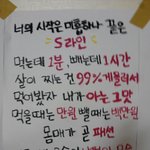 너의 시작은 미흡하나 끝은
S라인
먹는데 1분, 빼는데 1시간
살이 찌는 건 99% 게을러서
먹어봤자 내가 아는 그맛
먹을때는 만원 뺄때는 백만원
몸매가 곧 패션